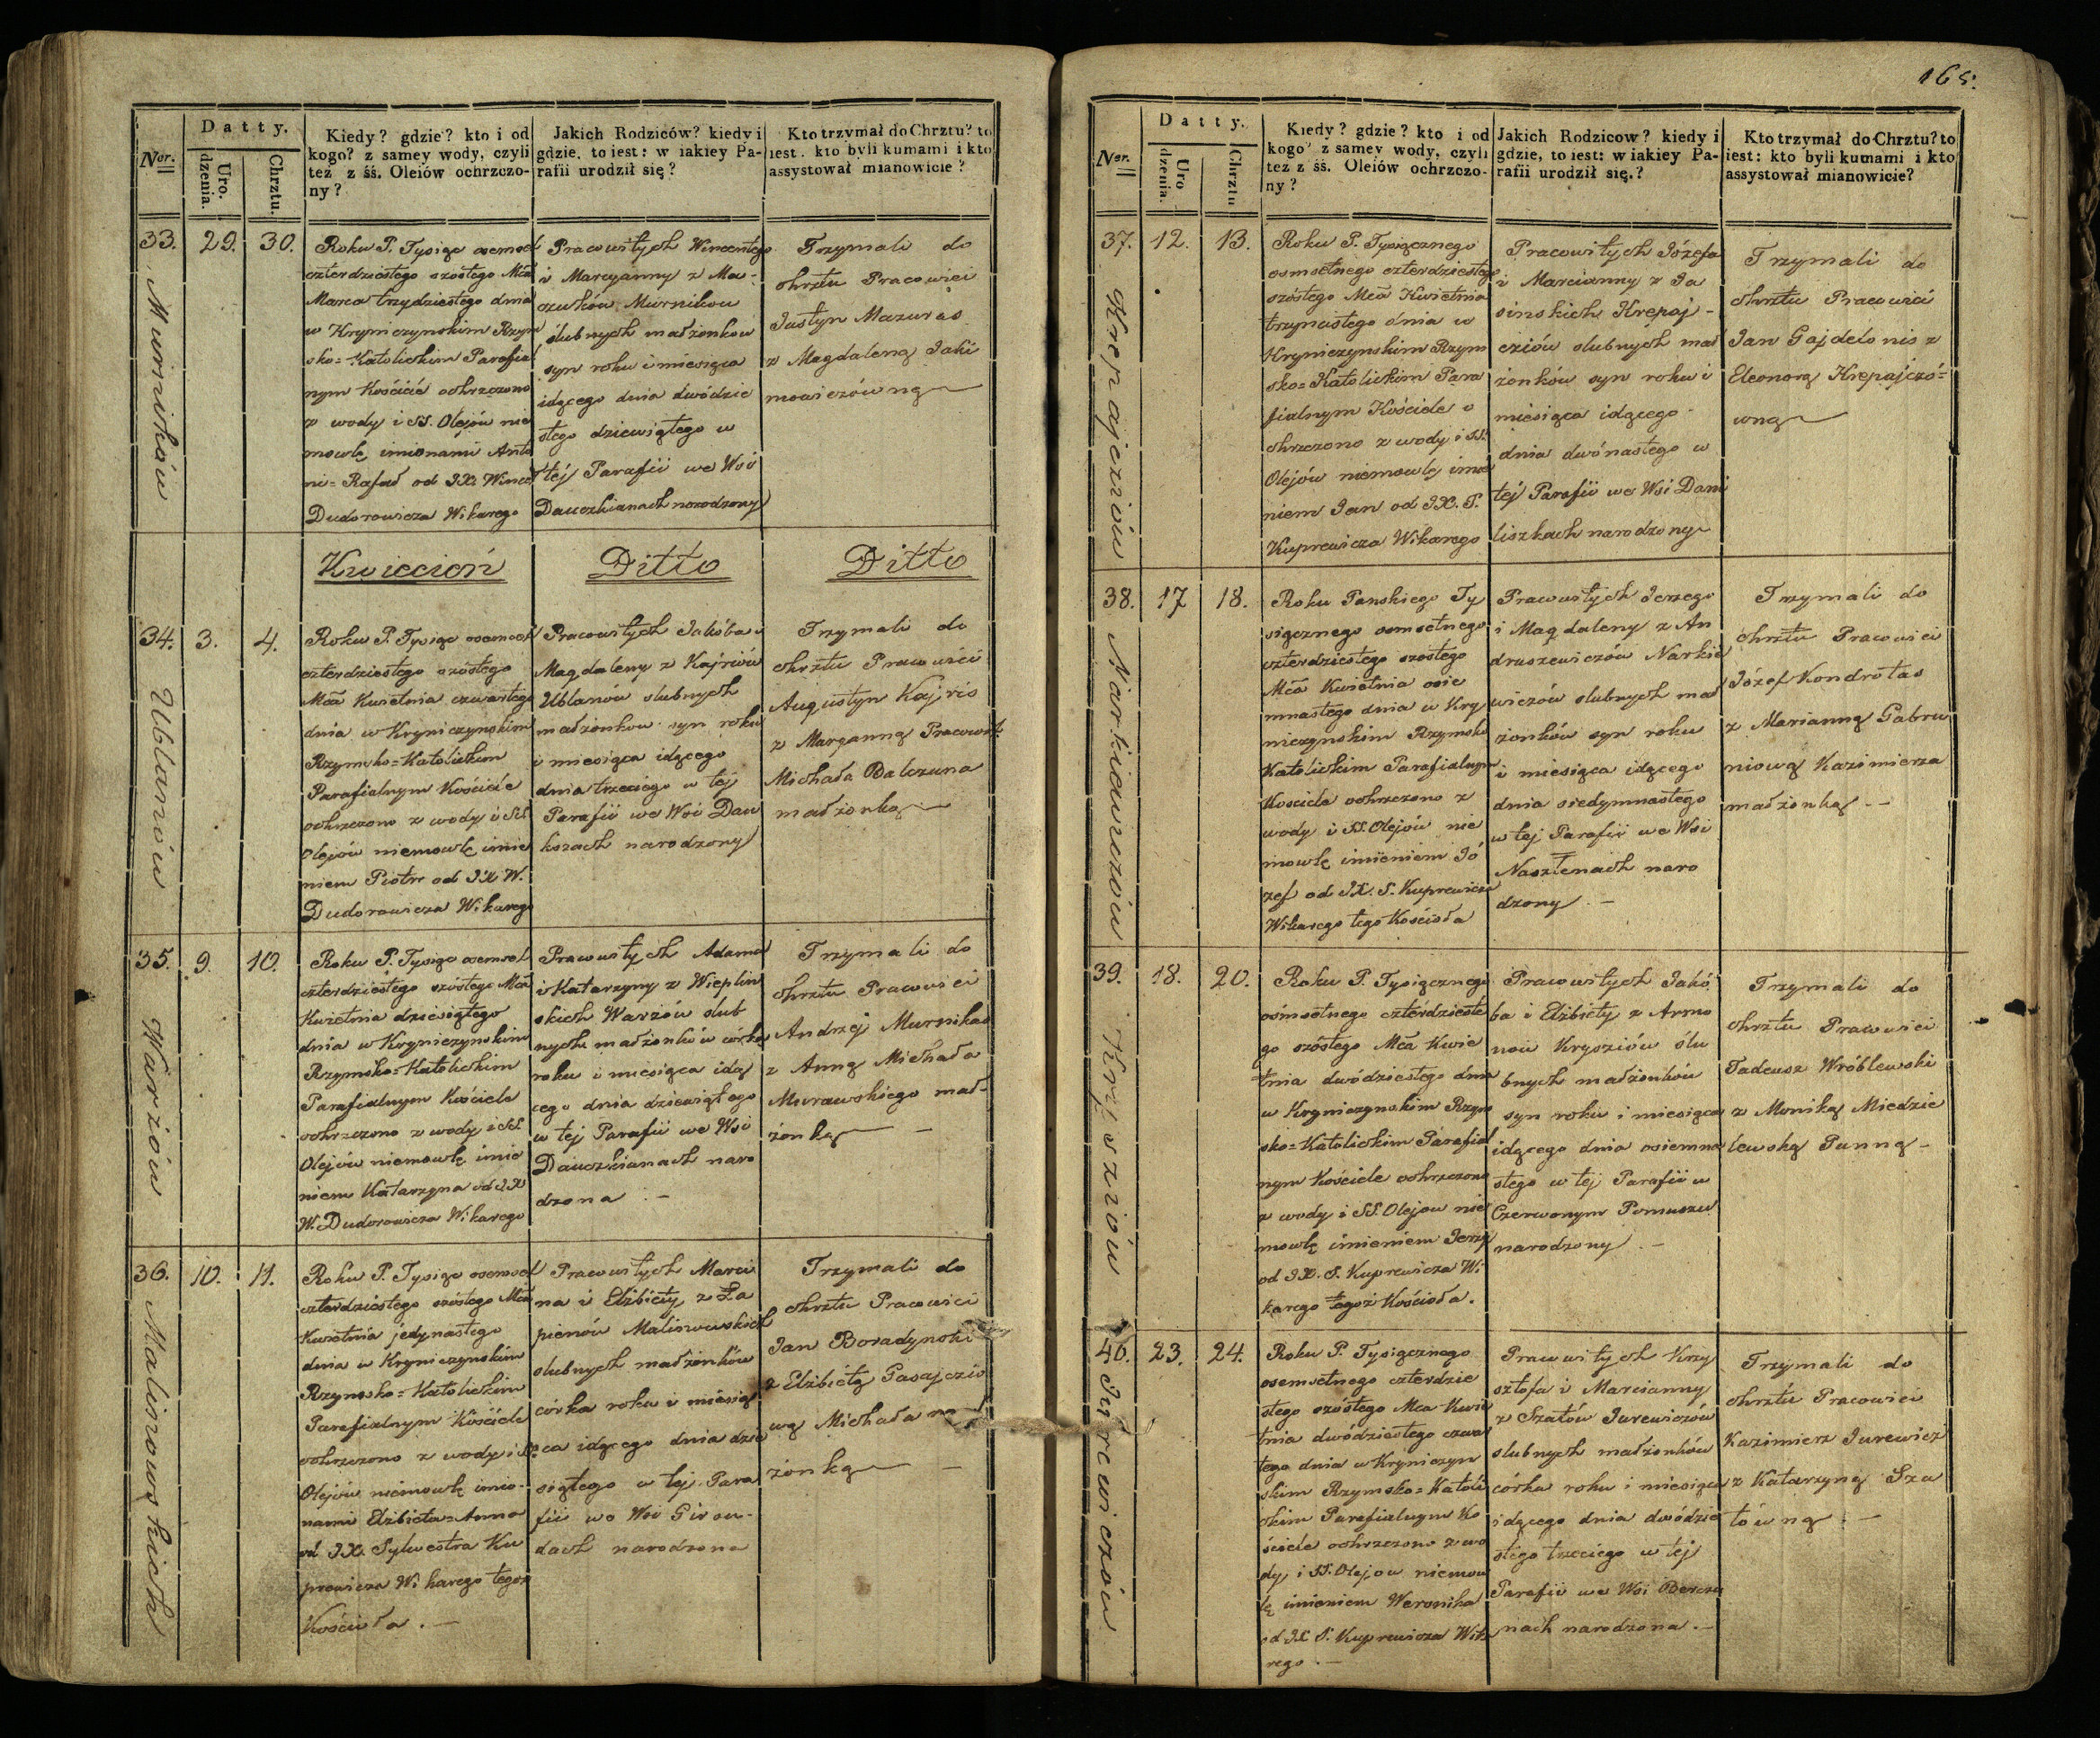 Datty.
Ner.
Uro.
dzenia.
Chrztu.
Kiedy? gdzie? kto i od
kogo? z samey wody, czyli
też z śś. Oleiów ochrzczo-
ny?
Jakich Rodziców? kiedy i
gdzie, to iest: w iakiey Pa-
rafii urodził się?
Kto trzymał do Chrztu? to
iest. kto byli kumami i kto
assystował mianowicie?
33. 29. 30.
Murnikow
Roku P. Tysiąc osemset
czterdziestego szostego Mca
Marca trzydziestego dnia
w Kryniczynskim Rzym
sko=Katolickim Parafial
nym Kościele ochrzczono
z wody i SS. Olejów nie
mowlę imionami Anto
ni=Rafał od JX. Wince
Dudorowicza Wikarego
Pracowitych Wincentego
i Maryanny z Ma-
Murnikow
ślubnych małżonkow
syn roku i miesiąca
idącego dnia dwódzie
stego dziewiątego w
tej Parafii we Wsi
Dauczkianach narodzony
Trzymali do
chrztu Pracowici
Justyn Mazuras
z Magdaleną Jaki
mowiczówną
Kwiecień Ditto Ditto
34. 3. 4.
Ublanów
Roku P. Tysiąc osemset
czterdziestego szostego
Mca Kwietnia czwartego
dnia w Kryniczynskim
Rzymsko=Katolickim
Parafialnym Kościele
ochrzczono z wody i SS.
Olejów niemowlę imie
niem Piotr od JX W.
Dudorowicza Wikarego
Pracowitych Jakóba i
Magdaleny z Kajrów
Ublanów slubnych
małżonkow syn roku
i miesiąca idącego
dnia trzeciego w tej
Parafii we Wsi Dau
kszach narodzony
Trzymali do
chrztu Pracowici
Augustyn Kajris
z Maryanną Pracowit.
Michała Balczuna
małżonką
35. 9. 10.
Warżów
Roku P. Tysiąc osemset
czterdziestego szóstego Mca
Kwietnia dziesiątego
dnia w Kryniczynskim
Rzymsko=Katolickim
Parafialnym Kościele
ochrzczono z wody i SS.
Olejów niemowlę imie
niem Katarzyna od JX
W. Dudorowicza Wikarego
Pracowitych Adama
i Katarzyny z Wieplin
skich Warżów ślub
nych małżonków córka
roku i miesiąca idą
cego dnia dziewiątego
w tej Parafii we Wsi
Dauczkianach naro
dzona
Trzymali do
chrztu Pracowici
Andrzej Murnikas
z Anną Michała
Murawskiego mał-
żonką
36. 10. 11.
Malinowskich
Roku P. Tysiąc osemset
czterdziestego szóstego Mca
Kwietnia jedynastego
dnia w Kryniczynskim
Rzymsko=Katolickim
Parafialnym Kościele
ochrzczono z wody i SS.
Olejów niemowlę imio-
nami Elżbieta=Anna
od JX. Sylwestra Ku
prewicza Wikarego tegoż
Kościoła.
Pracowitych Marci
na i Elżbiety z Ła
pienów Malinowskich
slubnych małżonków
córka roku i miesią
ca idącego dnia dzie
siątego w tej Para
fii we Wsi Girou-
dach narodzona
Trzymali do
chrztu Pracowici
Jan Boradynski
z Elżbietą
wą Michała mał
żonką
165.
Datty.
Ner.
Uro
dzenia.
Chrztu
Kiedy? gdzie? kto i od
kogo? z samey wody, czyli
tez z śś. Oleiów ochrzczo-
ny?
Jakich Rodzicow? kiedy i
gdzie, to iest: w iakiey Pa-
rafii urodził się.?
Kto trzymał do Chrztu? to
iest: kto byli kumami i kto
assystował mianowicie?
37. 12. 13.
Krepajcziów
Roku P. Tysiącznego
osmsetnego czterdziestego
szóstego Mca Kwietnia
trzynastego dnia w
Krynicynskim Rzym
sko=Katolickim Para
fialnym Kościele o
chrzczono z wody i SS.
Olejów niemowlę imie
niem Jan od JX. S.
Kuprewicza Wikarego
Pracowitych Józefa
i Marcianny z Ja
sinskich Krepaj-
cziów slubnych mał
żonków syn roku i
miesiąca idącego
dnia dwónastego w
tej Parafii we Wsi Dani
liszkach narodzony
Trzymali do
chrztu Pracowici
Jan Gajdelonis z
Eleonorą Krepajczó=
wną
38. 17 18.
Narkiewiczów
Roku Panskiego Ty
siącznego osmsetnego
czterdziestego szostego
Mca Kwietnia osie
mnastego dnia w Kry
niczynskim Rzymsko
Katolickim Parafialnym
Kosciele ochrzczono z
wody i SS. Olejów nie
mowlę imieniem Jó
zef od JX. S. Kuprewicza
Wikarego tego Kościoła
Pracowitych Jerzego
i Magdaleny z An
druszewiczów Narkie
wiczów slubnych mał
żonków syn roku
i miesiąca idącego
dnia siedymnastego
w tej Parafii we Wsi
Nasztenach naro
dzony
Trzymali do
chrztu Pracowici
Józef Kondrotas
z Marianną Gabru
niową Kazimierza
małżonką
39. 18. 20.
Kryszziów
Roku P. Tysiącznego
ośmsetnego czterdzieste
go szóstego Mca Kwie
tnia dwódziestego dnia
w Krynicznynskim Rzym
sko=Katolickim Parafial
nym Kościele ochrzczono
z wody i SS. Olejow nie
mowlę imieniem Jerzy
od JX. S. Kuprewicza Wi
karego tegoż Kościoła.
Pracowitych Jakó
ba i Elżbiety z Armo
now Krysziów ślu
bnych małżonków
syn roku i miesiąca
idącego dnia osiemna
stego w tej Parafii w
Czerwonym Pomuszu
narodzony
Trzymali do
chrztu Pracowici
Tadeusz Wróblewski
z Moniką Miedzie
lewską Panną
40. 23. 24.
Jurewiczów
Roku P. Tysiącznego
osemsetnego czterdzie
stego szóstego Mca Kwie
tnia dwódziestego czwar
tego dnia w Kryniczyn
skim Rzymsko=Katoli
ckim Parafialnym Ko
ściele ochrzczono z wo
dy i SS. Olejow niemow
lę imieniem Weronika
od JX S. Kuprewicza Wika
rego.
Pracowitych Krzy
sztofa i Marcianny
z Szatów Jurewiczów
slubnych małżonków
córka roku i miesiąca
idącego dnia dwódzie
stego trzeciego w tej
Parafii we Wsi Bercza
nach narodzona.
Trzymali do
chrztu Pracowici
Kazimierz Jurewicz
z Katarzyną Sza
tówną